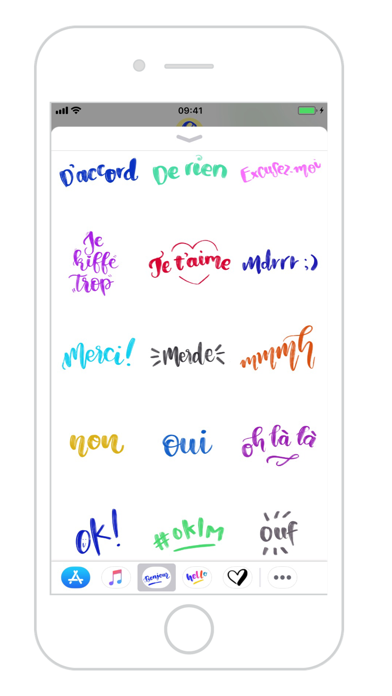 09:41
D'accord De rien Excusez-moi
Je
kiffe
trop
Je t'aime
Mdrrr ;)
Merci! Merde mmmh
non oui oh là là
ok! #oklm ouf
Bonjour hello